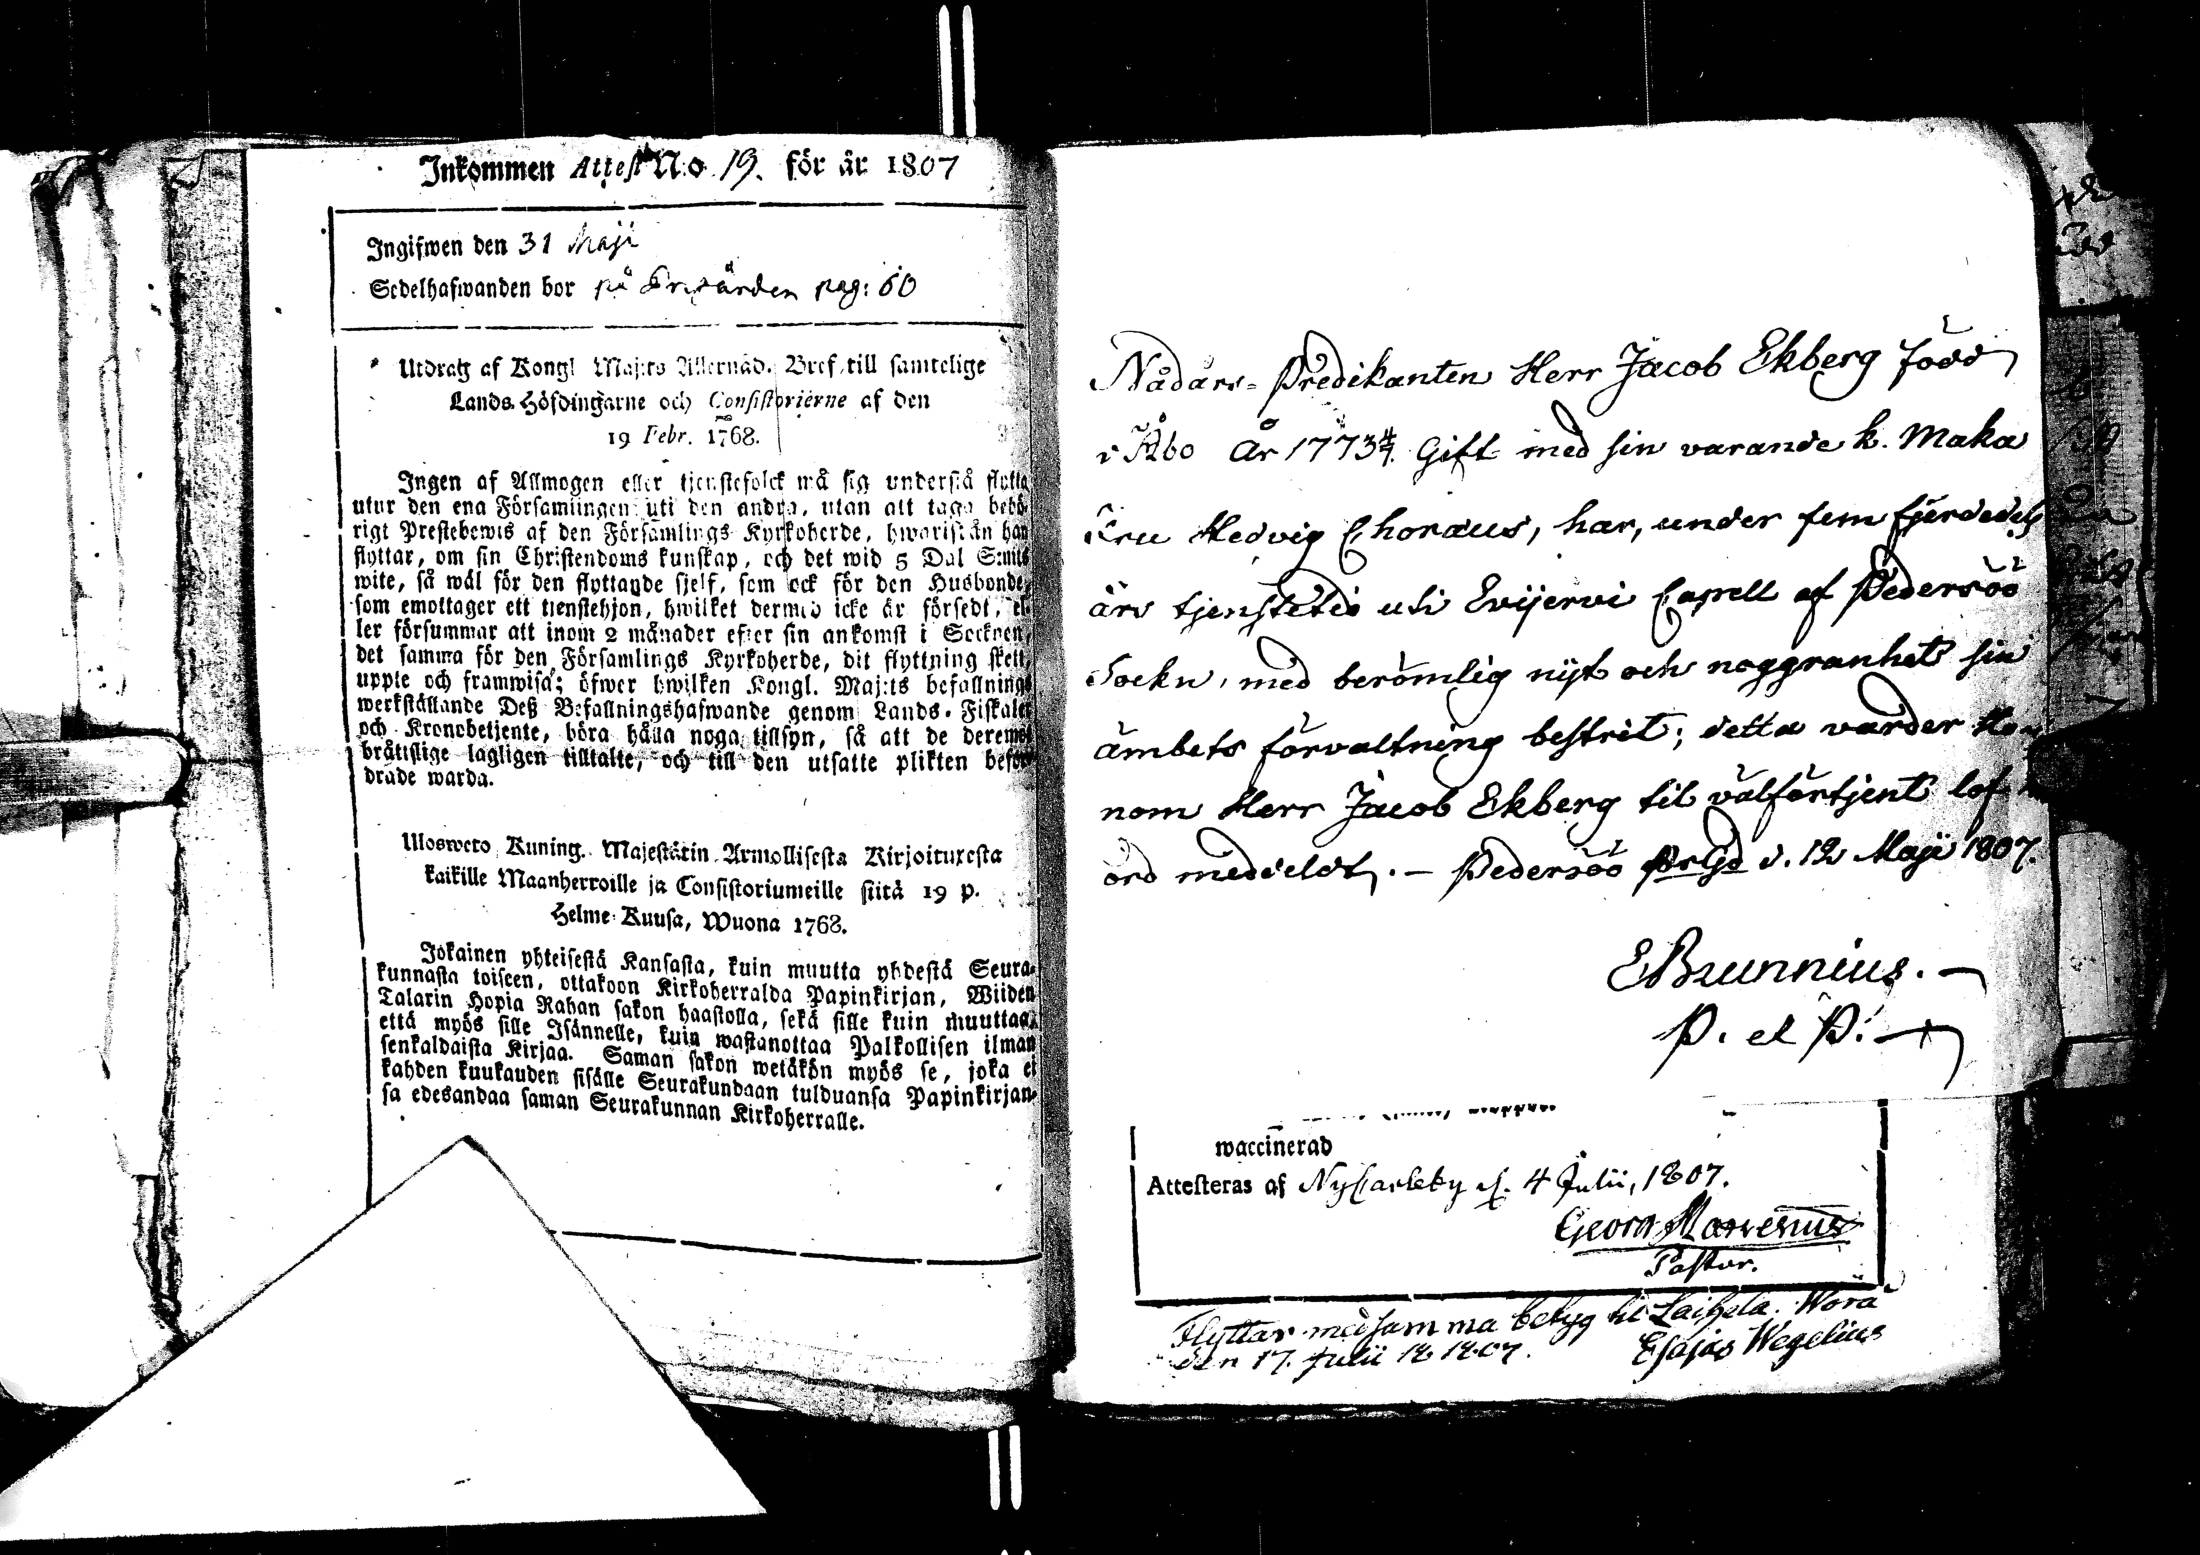 Inkommen Attest No 19. för år 1807
Ingifwen den 31 Maji
Sedelhafwanden bor på pag: 60
Utdrag af Kongl Maj:ts Allernåd. Bref till samtelige
Lands-Höfdingarne och Consistorierne af den
19 Febr. 1768.
Ingen af Allmogen eller tjenstefolck må sig understå flytta
utur den ena Församlingen uti den andra, utan att taga behö-
rigt Prestebewis af den Församlings Kyrkoherde, hwarifrån han
flyttar, om sin Christendoms kunskap, och det wid 5 Dal S:mts
wite, så wäl för den flyttande sjelf, som ock för den Husbonde,
som emottager ett tienstehjon, hwilket dermed icke är försedt, el-
ler försummar att inom 2 månader efter sin ankomst i Socknen,
det samma för den Församlings Kyrkoherde, dit flyttning skett,
uppte och framwisa; öfwer hwilken Kongl. Maj:ts befallnings
werkställande Deß Befallningshafwande genom Lands-Fiskaler
och Kronobetjente, böra hålla noga tillsyn, så att de deremot
bråttslige lagligen tilltalte, och till den utsatte plikten befor-
drade warda.
Ulosweto Kuning. Majestätin Armollisesta Kirjoituxesta
kaikille Maanherroille ja Consistoriumeille siitä 19 p.
Helme-Kuusa, Wuona 1768.
Jokainen yhteisestä Kansasta, kuin muutta yhdestä Seura-
kunnasta toiseen, ottakoon Kirkoherralda Papinkirjan, Wiiden
Talarin Hopia Rahan sakon haastolla, sekä sille kuin muuttaa,
että myös sille Isännelle, kuin wastanottaa Palkollisen ilman
senkaldaista Kirjaa. Saman sakon wetäkön myös se, joka ei
kahden kuukauden sisälle Seurakundaan tulduansa Papinkirjan-
sa edesandaa saman Seurakunnan Kirkoherralle.
Nådårs-Predikanten Herr Jacob Ekberg född
i Åbo År 1773 4/4. Gift med sin varande k. Maka
Fru Hedvig Choræus, har, under fem fjerdedels
års tjenstetid uti Evijervi Capell af Pedersöö
Sockn, med berömlig nijt och noggranhet sin
ämbets förvaltning bestrit; detta varder Ho-
nom Herr Jacob Ekberg til välförtjent lof
ord meddeldt. – Pedersöö Prgd d. 12 Maji 1807.
EBrunnius.
P. et P.
waccinerad
Attesteras af NyCarleby d. 4 Julii, 1807.
Georg
Pastor.
Flyttar med samma betyg til Laihela. Wörå
den 17. Julii 1807. Esajas Wegelius